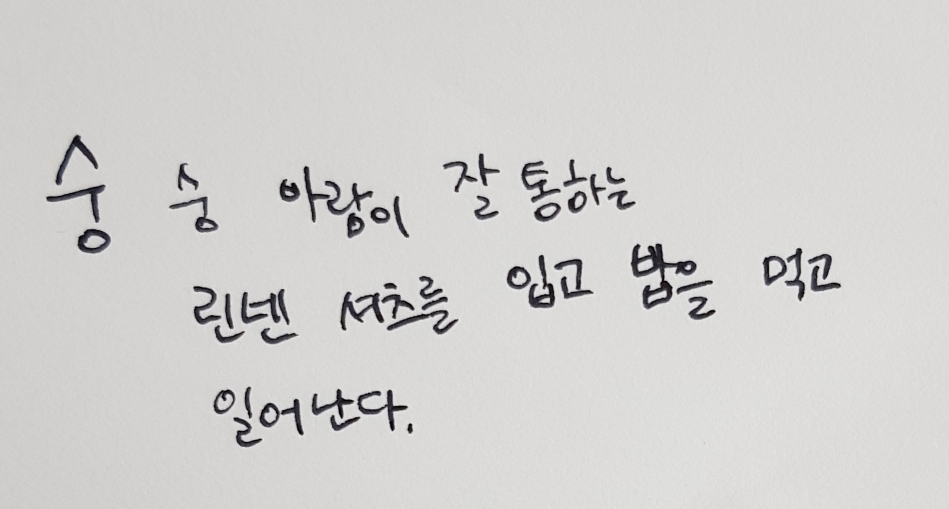 숭 숭 바람이 잘 통하는
린넨 셔츠를 입고 밥을 먹고
일어난다.